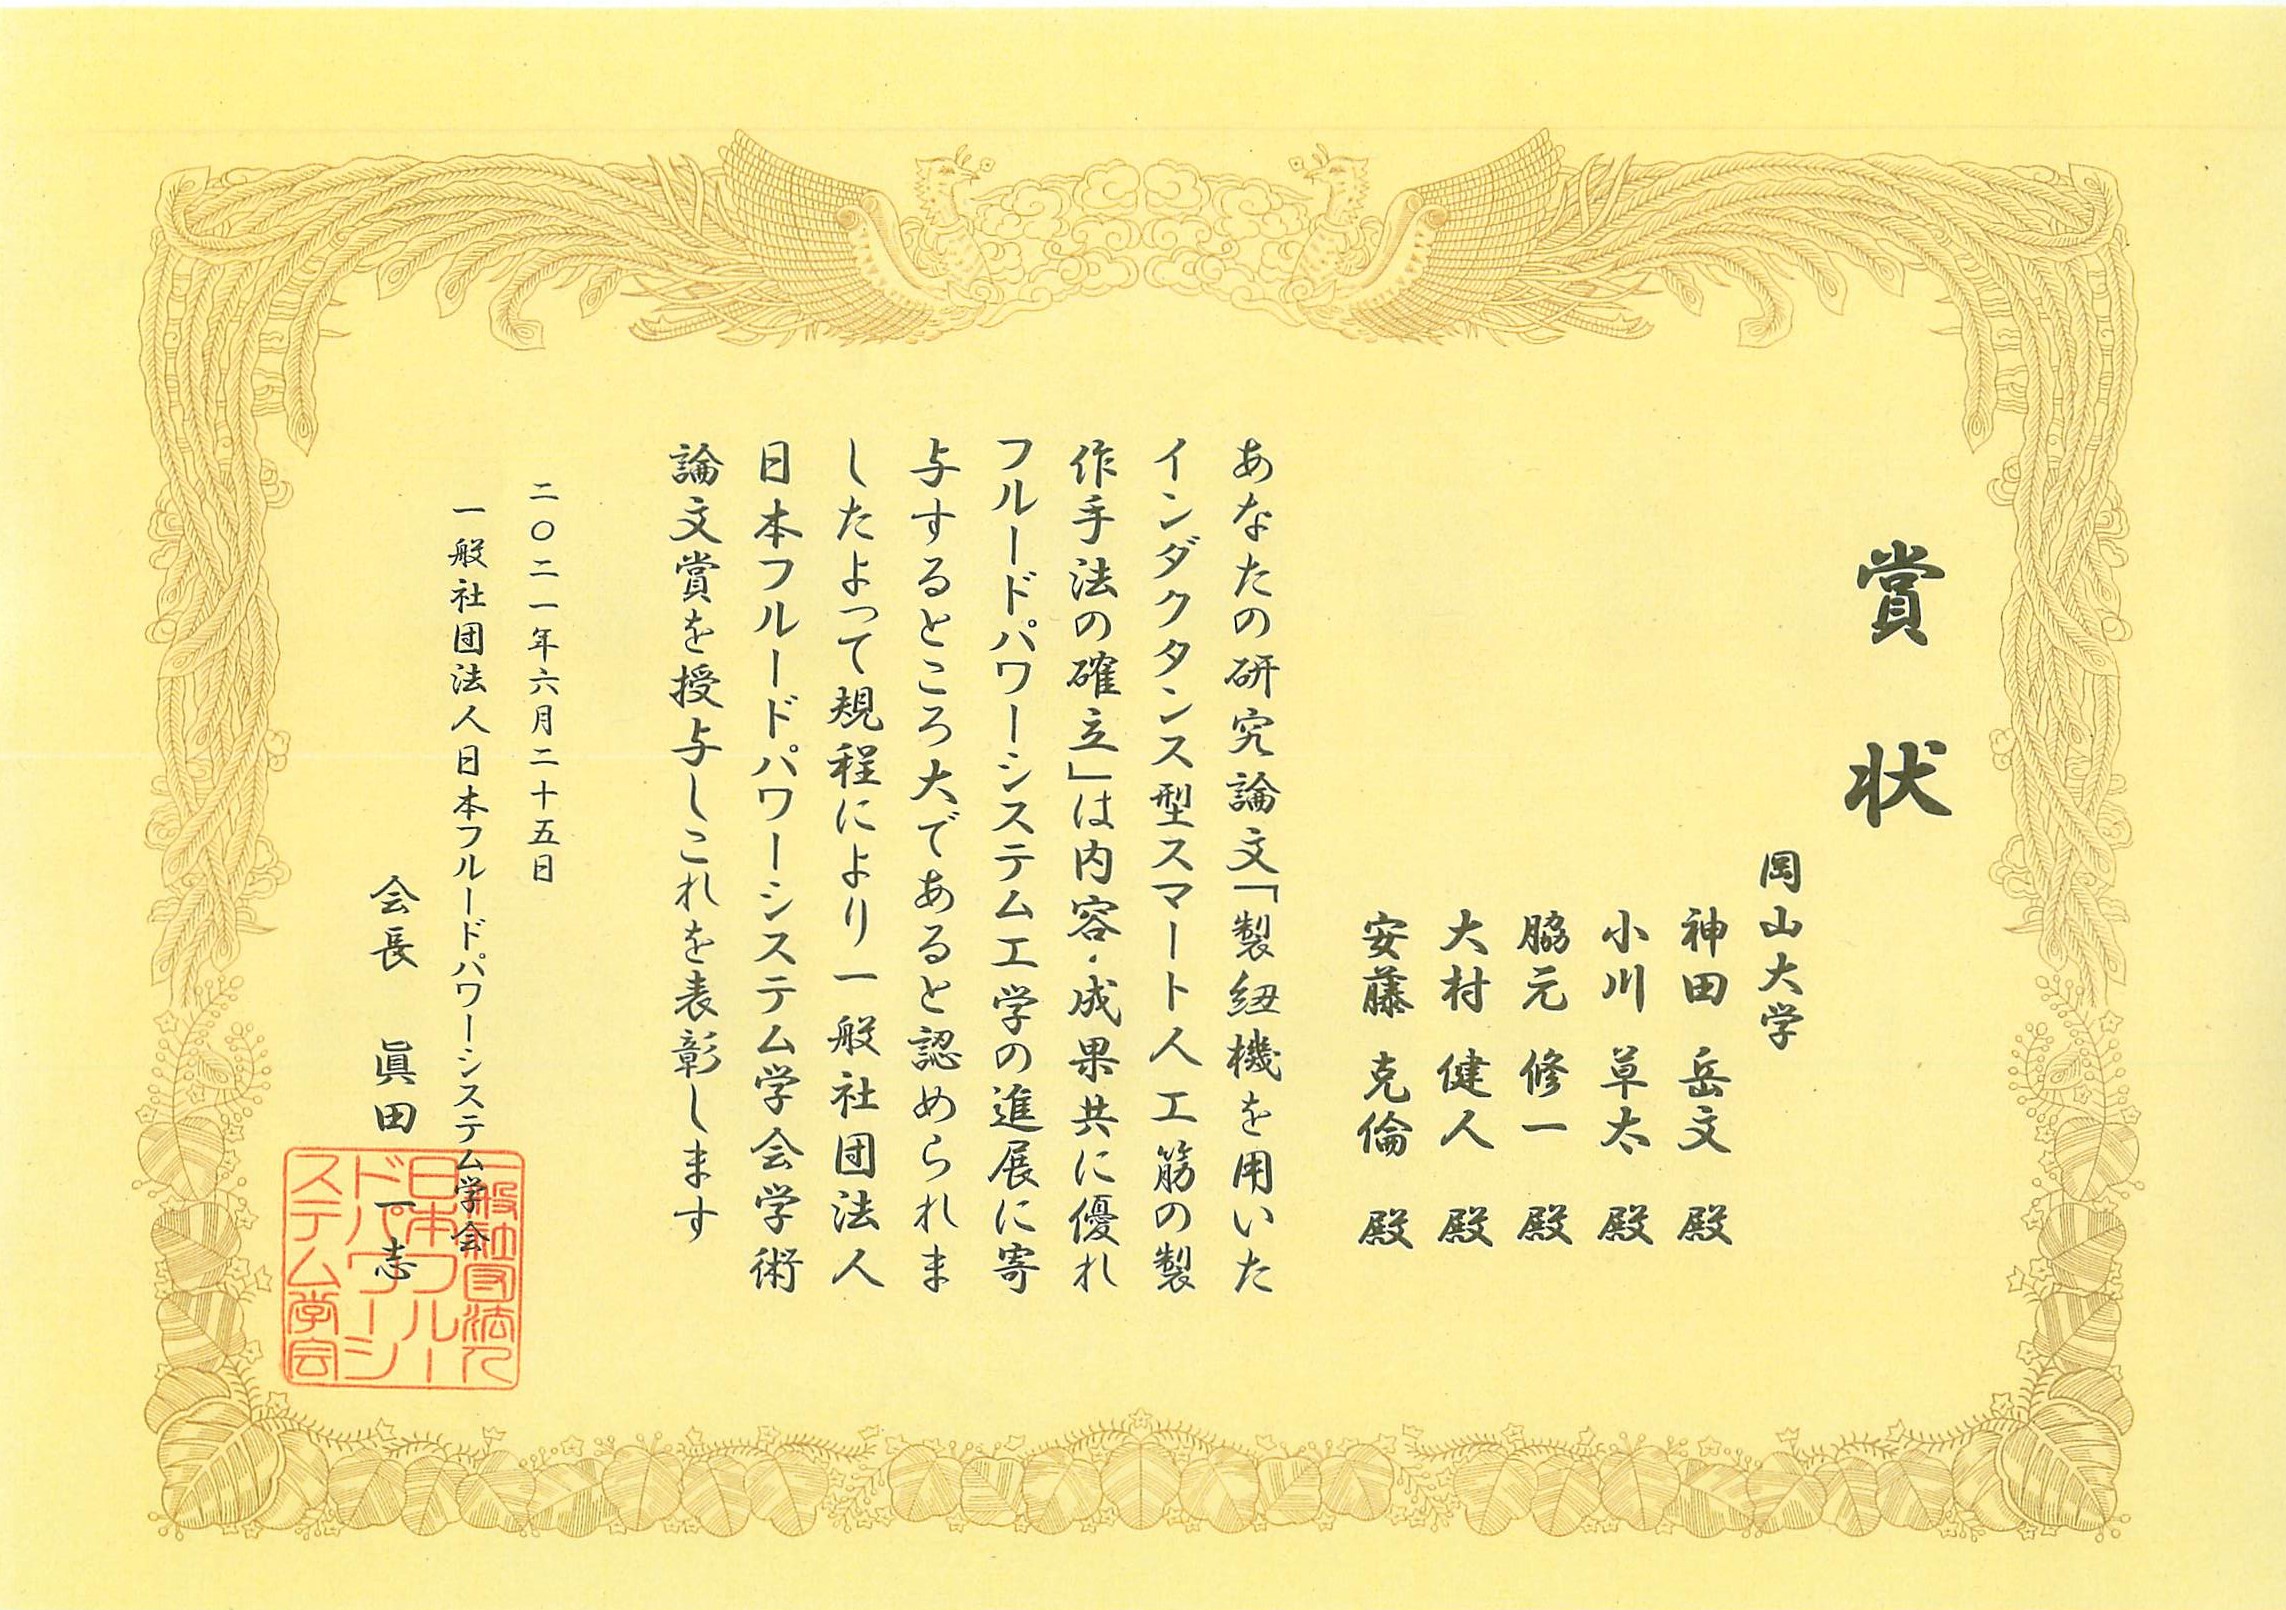 賞状
岡山大学
神田 岳文 殿
小川 草太 殿
脇元 修一 殿
大村 健人 殿
安藤 克倫 殿
あなたの研究論文「製紐機を用いた
インダクタンス型スマート人工筋の製
作手法の確立」は内容・成果共に優れ
フルードパワーシステム工学の進展に寄
与するところ大であると認められま
したよって規程により一般社団法人
日本フルードパワーシステム学会学術
論文賞を授与しこれを表彰します
二〇二一年六月二十五日
一般社団法人日本フルードパワーシステム学会
会長 眞田 一志
一般社団法人
日本フルー
ドパワーシ
ステム学会